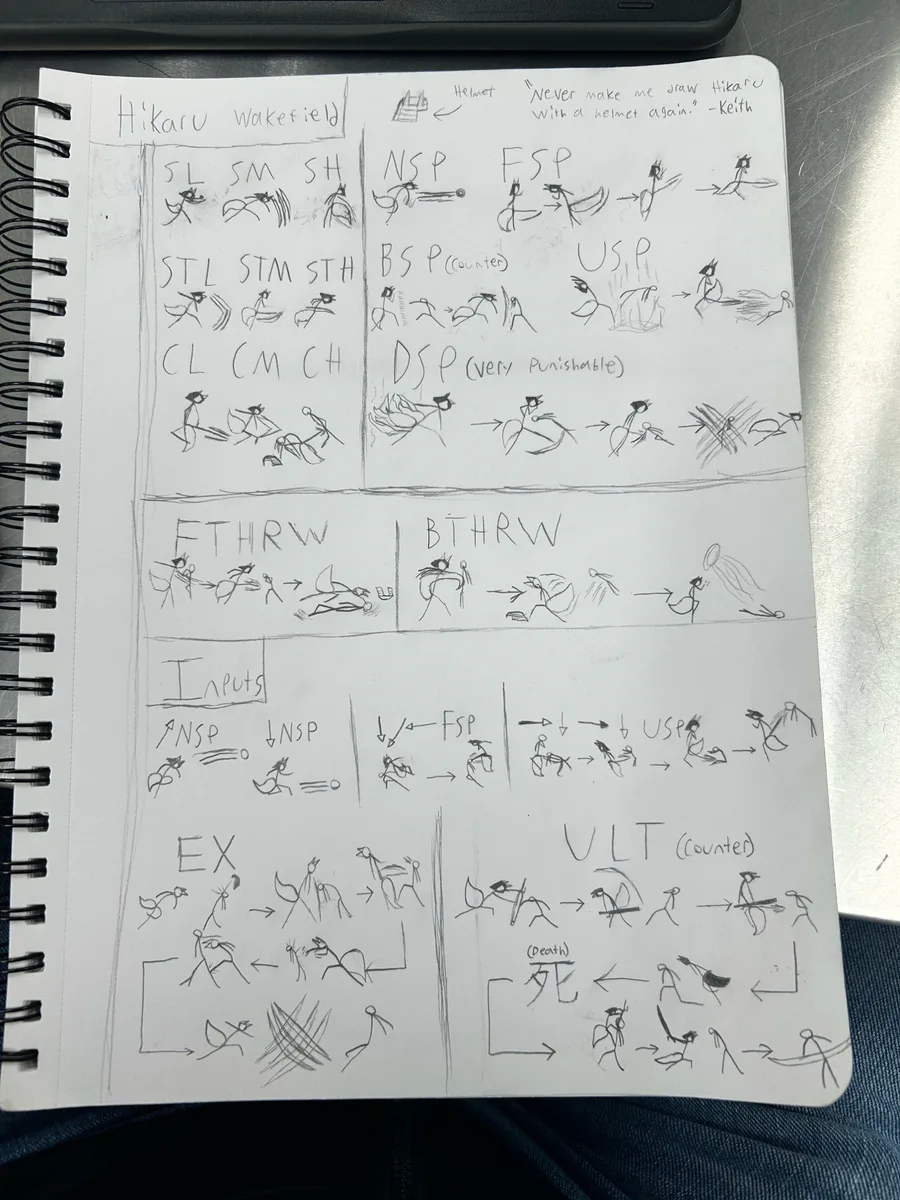 Hikaru Wakefield
Helmet
"Never make me draw Hikaru
with a helmet again." -Keith
SL SM SH
NSP FSP
STL STM STH
BSP (counter) USP
CL CM CH
DSP (very punishable)
FTHRW BTHRW
Inputs
↗NSP ↓NSP
↓↙← FSP
→↓→↓ USP
EX
ULT (counter)
(Death)
死